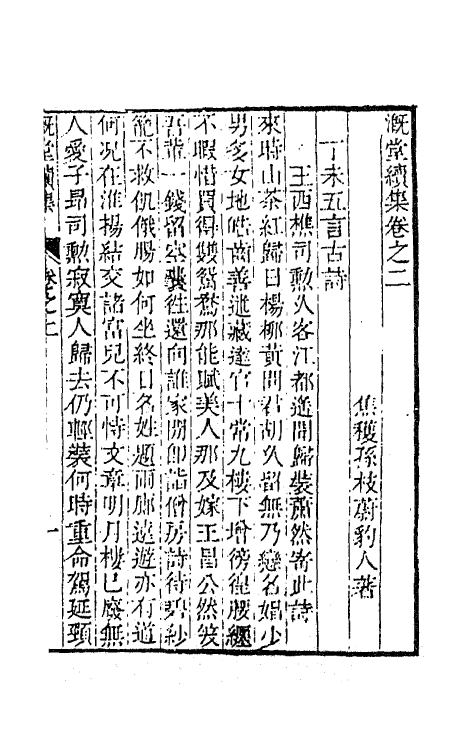 溉堂續集卷之二
焦穫孫枝蔚豹人著
丁未五言古詩
王西樵司勳久客江都遙聞歸裝蕭然寄此詩
來時山茶紅歸日楊柳黃問君胡久留無乃戀名娼少
男多女地皓齒善迷藏達官十常九樓下增徬徨腰纏
不暇惜買得雙鴛鴦那能賦美人那及嫁王昌公然笑
吾輩一錢留空囊往還向誰家開卽詣僧房詩待碧紗
籠不救飢餓腸如何坐終日名姓題兩廊遠遊亦有道
何况在淮楊結交諸富兒不可恃文章明月樓已廢無
人愛子昻司勳寂寞人歸去仍輕裝何時重命駕延頸
溉堂續集
卷之二
一